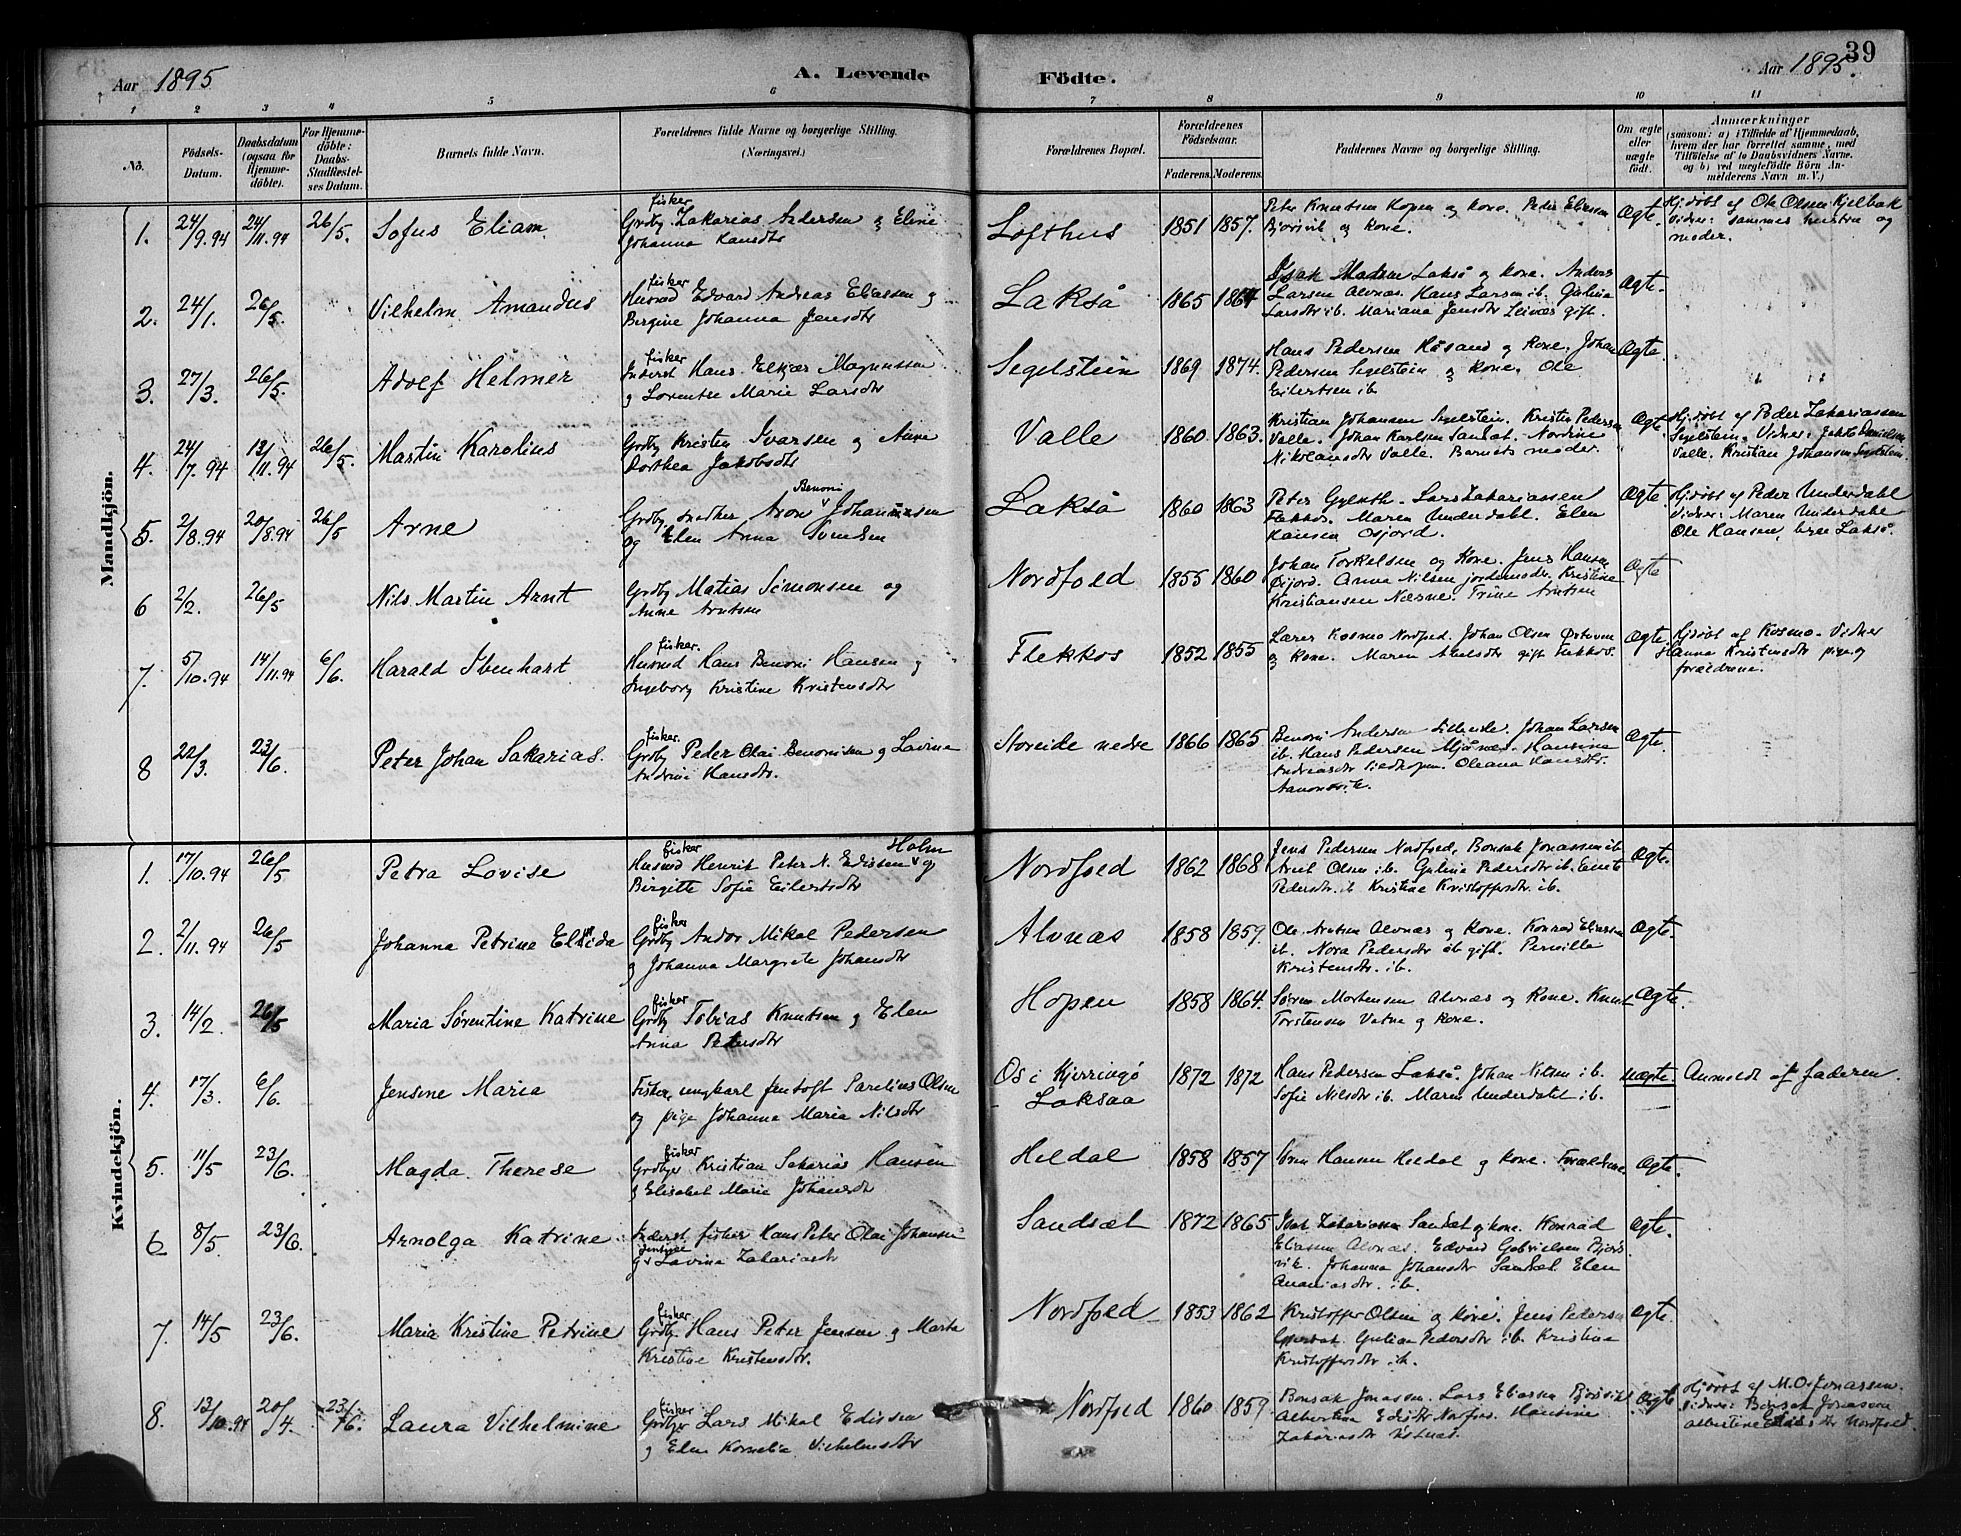 39
Aar 1895
A. Levende
Födte.
Aar 1895.
1 2 3 4 5 6 7 8 9 10 11
No.
Födsels-Datum.
Daabsdatum (ogsaa for Hjemme-döbte).
For Hjemme-döbte: Daabs-Stadfæstel-ses Datum.
Barnets fulde Navn.
Forældrenes fulde Navne og borgerlige Stilling.
(Næringsvei.)
Forældrenes Bopæl.
Forældrenes Födselsaar.
Faderens. Moderens.
Faddernes Navne og borgerlige Stilling.
Om ægte eller uægte födt.
Anmærkninger
(saasom: a) i Tilfælde af Hjemmedaab, hvem der har forrettet samme, med Tilföielse af to Daabsvidners Navne, og b) ved uægtefödte Börn Anmelderens Navn m. V.)
Mandkjön.
1. 24/9.94 24/11.94 26/5. Sofus Eliam
fisker
Grdbr Zakarias Andersen & Eline
Johanna Hansdtr
Lofthus 1851 1857.
Peter Knutsen Hopen og kone. Peder Eliassen
Bjørvik og Kone.
Ægte.
Hjdøbt af Ole Olsen Kjelbak
Vidner: sammes hustru og
moder.
2. 24/1. 26/5. Vilhelm Amandus
fisker
Husmd Edvard Andreas Eliassen &
Bergine Johanna Jensdtr
Lakså 1865 1864
Isak Madsen Lakså og kone. Anders
Larsen Alvnæs. Hans Larsen ib. Gulina
Larsdtr ib. Mariana Jensdtr Leivæs gift.
Ægte.
3. 27/3. 26/5. Adolf Helmer
fisker
Inderst Hans Elkjær Magnussen
& Lorentse Marie Larsdtr
Segelstein 1869 1874.
Hans Pedersen Husand og Kone. Johan
Pedersen Segelstein & Kone. Ole
Eilertsen ib
Ægte.
4. 24/7.94 13/11.94 26/5. Martin Karolius
Grdbr Kristen Ivarsen og Anne
Dorthea Jakobsdtr
Valle 1860 1863.
Kristian Johansen Segelstein. Kristen Pedersen
Valle. Johan Karlsen Sandsæt. Nordine
Nikolausdtr Valle. Barnets moder.
Ægte
Hjdøbt af Peder Zakariassen
Segelstein. Vidner: Jakob Danielsen
Valle. Kristian Johansen Segelstein.
5. 2/8.94 20/8.94 26/5 Arne
Grdbr. snedker Aron Benoni Johannesen
og Elen Anna Svendsen
Lakså 1860 1863
Peter Gylseth. Lars Zakariassen
Flekkos. Maren Underdahl. Elen
Hansen Osjord.
Ægte
Hjdøbt af Peder Underdahl
Vidner: Maren Underdahl
Ole Hansen, hver Lakså.
6 2/2. 26/5 Nils Martin Arnt
Grdbr Matias Simonsen og
Anne Arntsen
Nordfold 1855 1860
Johan Torkelsen og Kone. Jens Hansen
Øijord. Anna Nilsen jordemoder. Kristine
Kristiansen Næsne. Trine Arntsen
Ægte
7. 5/10.94 14/11.94 6/6. Harald Ibenhart
fisker.
Husmd Hans Benoni Hansen &
Ingeborg Kristine Kristensdtr
Flekkos 1852 1855
Lærer Kosmo Nordfold. Johan Olsen Østoven
og Kone. Maren Akelsdtr gift Flekkos.
Ægte.
Hjdøbt af Kosmo. Vidner
Hanna Kristensdtr pige og
forældrene.
8 22/3. 23/6. Peter Johan Sakarias.
fisker.
Grdbr Peder Olai Benonisen & Lavina
Andrine Hansdtr.
Storeide nedre 1866 1865.
Benoni Andersen. Johan Larsen
ib. Hans Pedersen Mjånes. Hansina
Andreasdtr. Oleana Hansdtr.
Aanonsvik.
Ægte.
Kvindekjön.
1. 17/10.94 26/5 Petra Lovise
fisker
Husmd Henrik Peter N. Edissen Holm &
Birgitte Sofie Eilertsdtr
Nordfold 1862 1868
Jens Pedersen Nordfold, Bonsak Jonassen ib
Arnt Olsen ib. Gulina Pedersdtr ib.
Pedersdtr. ib Kristine Kristoffersdtr. ib.
Ægte.
2. 2/11.94 26/5 Johanna Petrine Elfrida
fisker
Grdbr Andor Mikal Pedersen
& Johanna Margrete Johansdtr
Alvnæs 1858 1859.
Ole Arntsen Alvnæs og Kone. Konrad Eliassen
ib. Nora Pedersdtr ib gift. Pernille
Kristensdtr. ib.
Ægte.
3. 14/2. 26/5 Maria Sørentine Katrine
fisker
Grdbr Tobias Knutsen & Elen
Anna Petersdtr
Hopen 1858 1864.
Søren Mortensen Alvnæs og Kone. Knut
Torstensen Vatne & Kone.
Ægte.
4. 17/3. 6/6. Jensine Maria
Fisker, ungkarl Jentoft Parelius Olsen
og pige Johanna Maria Nilsdtr
Os i Kjerringø
Laksaa
1872 1872
Hans Pedersen Lakså. Johan Nilsen ib.
Sofie Nilsdtr ib. Maren Underdahl ib.
uægte.
Anmeldt af faderen.
5. 11/5 23/6. Magda Therese
fisker
Grdbr Kristian Sakarias Hansen
& Elisabet Marie Johansdtr
Heldal 1858 1857
Søren Hansen Heldal & kone. Forældrene.
Ægte.
6 8/5. 23/6. Arnolga Katrine
Inderst, fisker Hans Peter Olai Johansen
& Jentine Lavina Zakariasdtr
Sandsæt 1872 1865
Isak Zakariassen Sandsæt & kone. Konrad
Eliassen Alvnæs. Edvard Gabrielsen Bjørs
vik. Johanna Johansdtr Sandsæt. Elen
Ananiasdtr. ib.
Ægte.
7. 14/5 23/6. Maria Kristine Petrine
fisker
Grdbr. Hans Peter Jensen & Marta
Kristine Kristensdtr.
Nordfold 1853 1862
Kristoffer Olsen og Kone. Jens Pedersen
Gulina Pedersdtr ib. Kristina
Kristoffersdtr ib.
Ægte.
8. 13/10.94 20/4. 23/6. Laura Vilhelmine
fisker
Grdbr Lars Mikal Edissen
& Elen Kornelia Vilhelmsdtr
Nordfold 1860 1859
Bonsak Jonassen. Lars Eliassen Bjørsvik
Albertina Edisdtr Norfold. Hansine
Zakariasdtr
Ægte
Hjdøbt af M. O. Jonassen.
Vidner: Bonsak Jonassen
Albertine Edisdtr Nordfold.